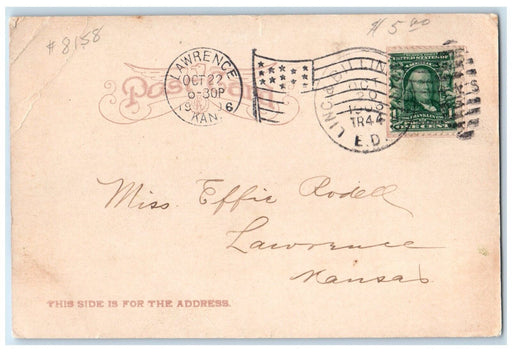 #8158
$5.00
Post Card
LAWRENCE
OCT 22
6-30P
1906
KAN.
LINCOLN, ILL.
1906
TR 44
E.D.
ONE CENT
Miss. Effie Rodell
Lawrence
Kansas
THIS SIDE IS FOR THE ADDRESS.